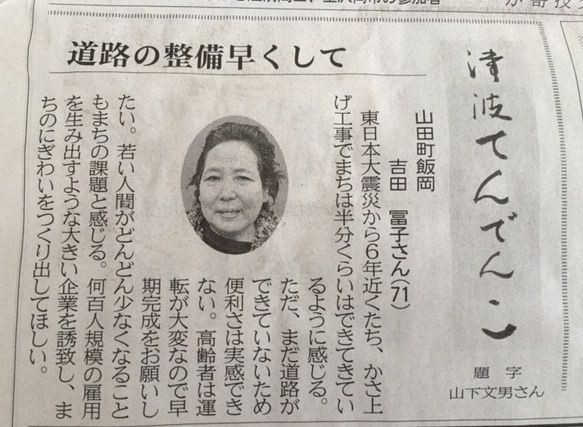 津波てんでんこ
題字
山下文男さん
道路の整備早くして
山田町飯岡
吉田 冨子さん(71)
東日本大震災から6年近くたち、かさ上
げ工事でまちは半分くらいはできてきてい
るように感じる。
ただ、まだ道路が
できていないため
便利さは実感でき
ない。高齢者は運
転が大変なので早
期完成をお願いし
たい。若い人間がどんどん少なくなること
もまちの課題と感じる。何百人規模の雇用
を生み出すような大きい企業を誘致し、ま
ちのにぎわいをつくり出してほしい。